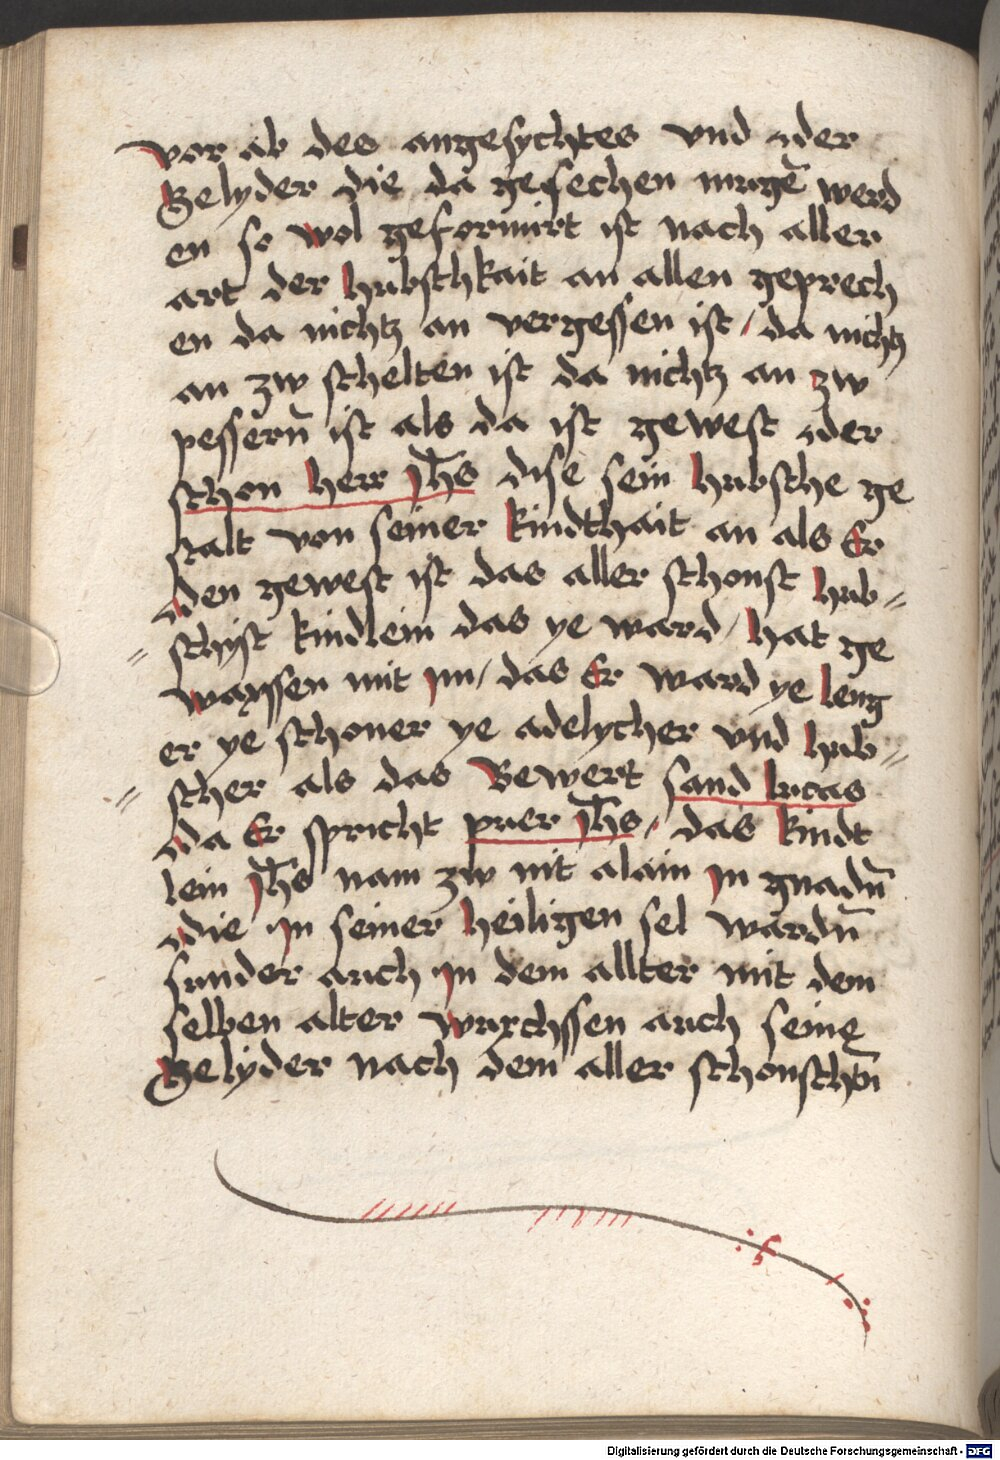 vor ab des angesychtes vnd oder
Gelyder die da gesechen mugē werd
en so wol geformirt ist nach aller
art der hubschkait an allen geprech
en da nichtz an vergessen ist / da nichtz
an zw schelten ist da nichtz an zw
pessern̄ ist als da ist gewest der
schon herr jh̄s dise sein hubsche ge
stalt von seiner kindthait an als Er
den gewest ist das aller schonst hub=
schist kindlein das ye ward / hat ge
waxssen mit jm / das Er ward ye leng
er ye schoner ye adelycher vnd hub=
scher als das Bewert sand lucas
da Er spricht puer jh̄s / das kindt
lein jh̄s nam zw nit alain jn gnadn̄
die jn seiner heiligen sel wardn̄
sunder auch jn dem allter mit dem
selben alter wuxchssen auch seine
Gelyder nach dem aller schonschtn̄
Digitalisierung gefördert durch die Deutsche Forschungsgemeinschaft - DFG